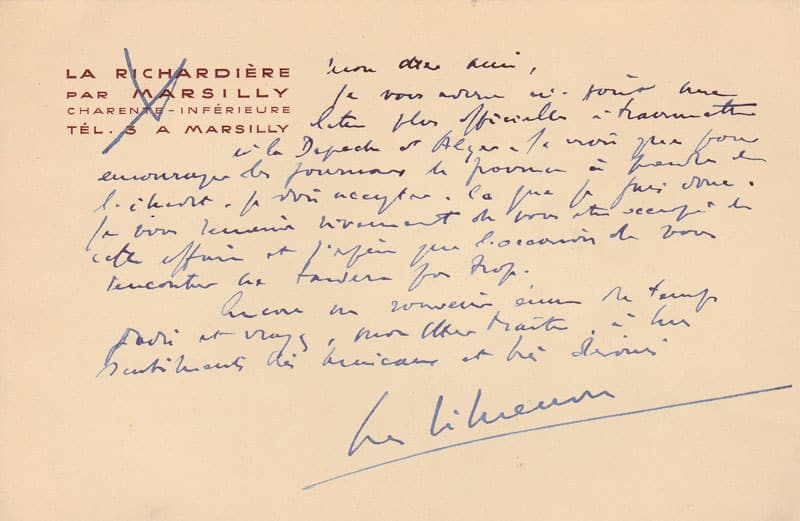 LA RICHARDIÈRE
PAR MARSILLY
CHARENTE-INFÉRIEURE
TÉL. 5 A MARSILLY
Mon cher ami,
Je vous adresse ci-joint une
lettre plus officielle à transmettre
à la Dépêche et Alger. Je crois que pour
encourager les journaux de province à prendre de
l'inédit, je dois accepter. Ce que je fais donc.
Je vous remercie vivement de vous être occupé de
cette affaire et j'espère que l'occasion de vous
rencontrer ne tardera pas trop.
Encore un souvenir ému du temps
jadis et croyez, mon cher, à mes
sentiments très amicaux et très dévoués
Simenon